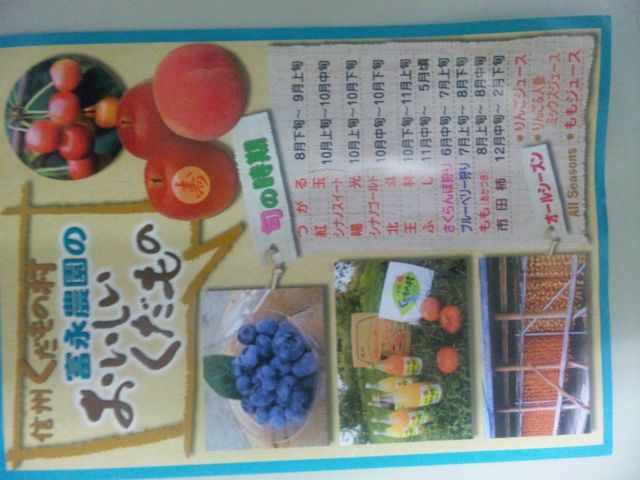 信州くだもの村
富永農園の
おいしい
くだもの
寿
旬の時期
つがる 8月下旬～ 9月上旬
紅玉 10月上旬～10月中旬
シナノスイート 10月上旬～10月中旬
陽光 10月上旬～10月下旬
シナノゴールド 10月中旬～10月下旬
北斗 10月中旬～10月下旬
王林 10月下旬～11月上旬
ふじ 11月中旬～ 5月頃
さくらんぼ狩り 6月中旬～ 7月上旬
ブルーベリー狩り 7月上旬～ 8月下旬
もも(あかつき) 8月上旬～ 8月中旬
市田柿 12月中旬～ 2月下旬
オールシーズン
All Seasons
●りんごジュース
●りんご&人参
ミックスジュース
●ももジュース